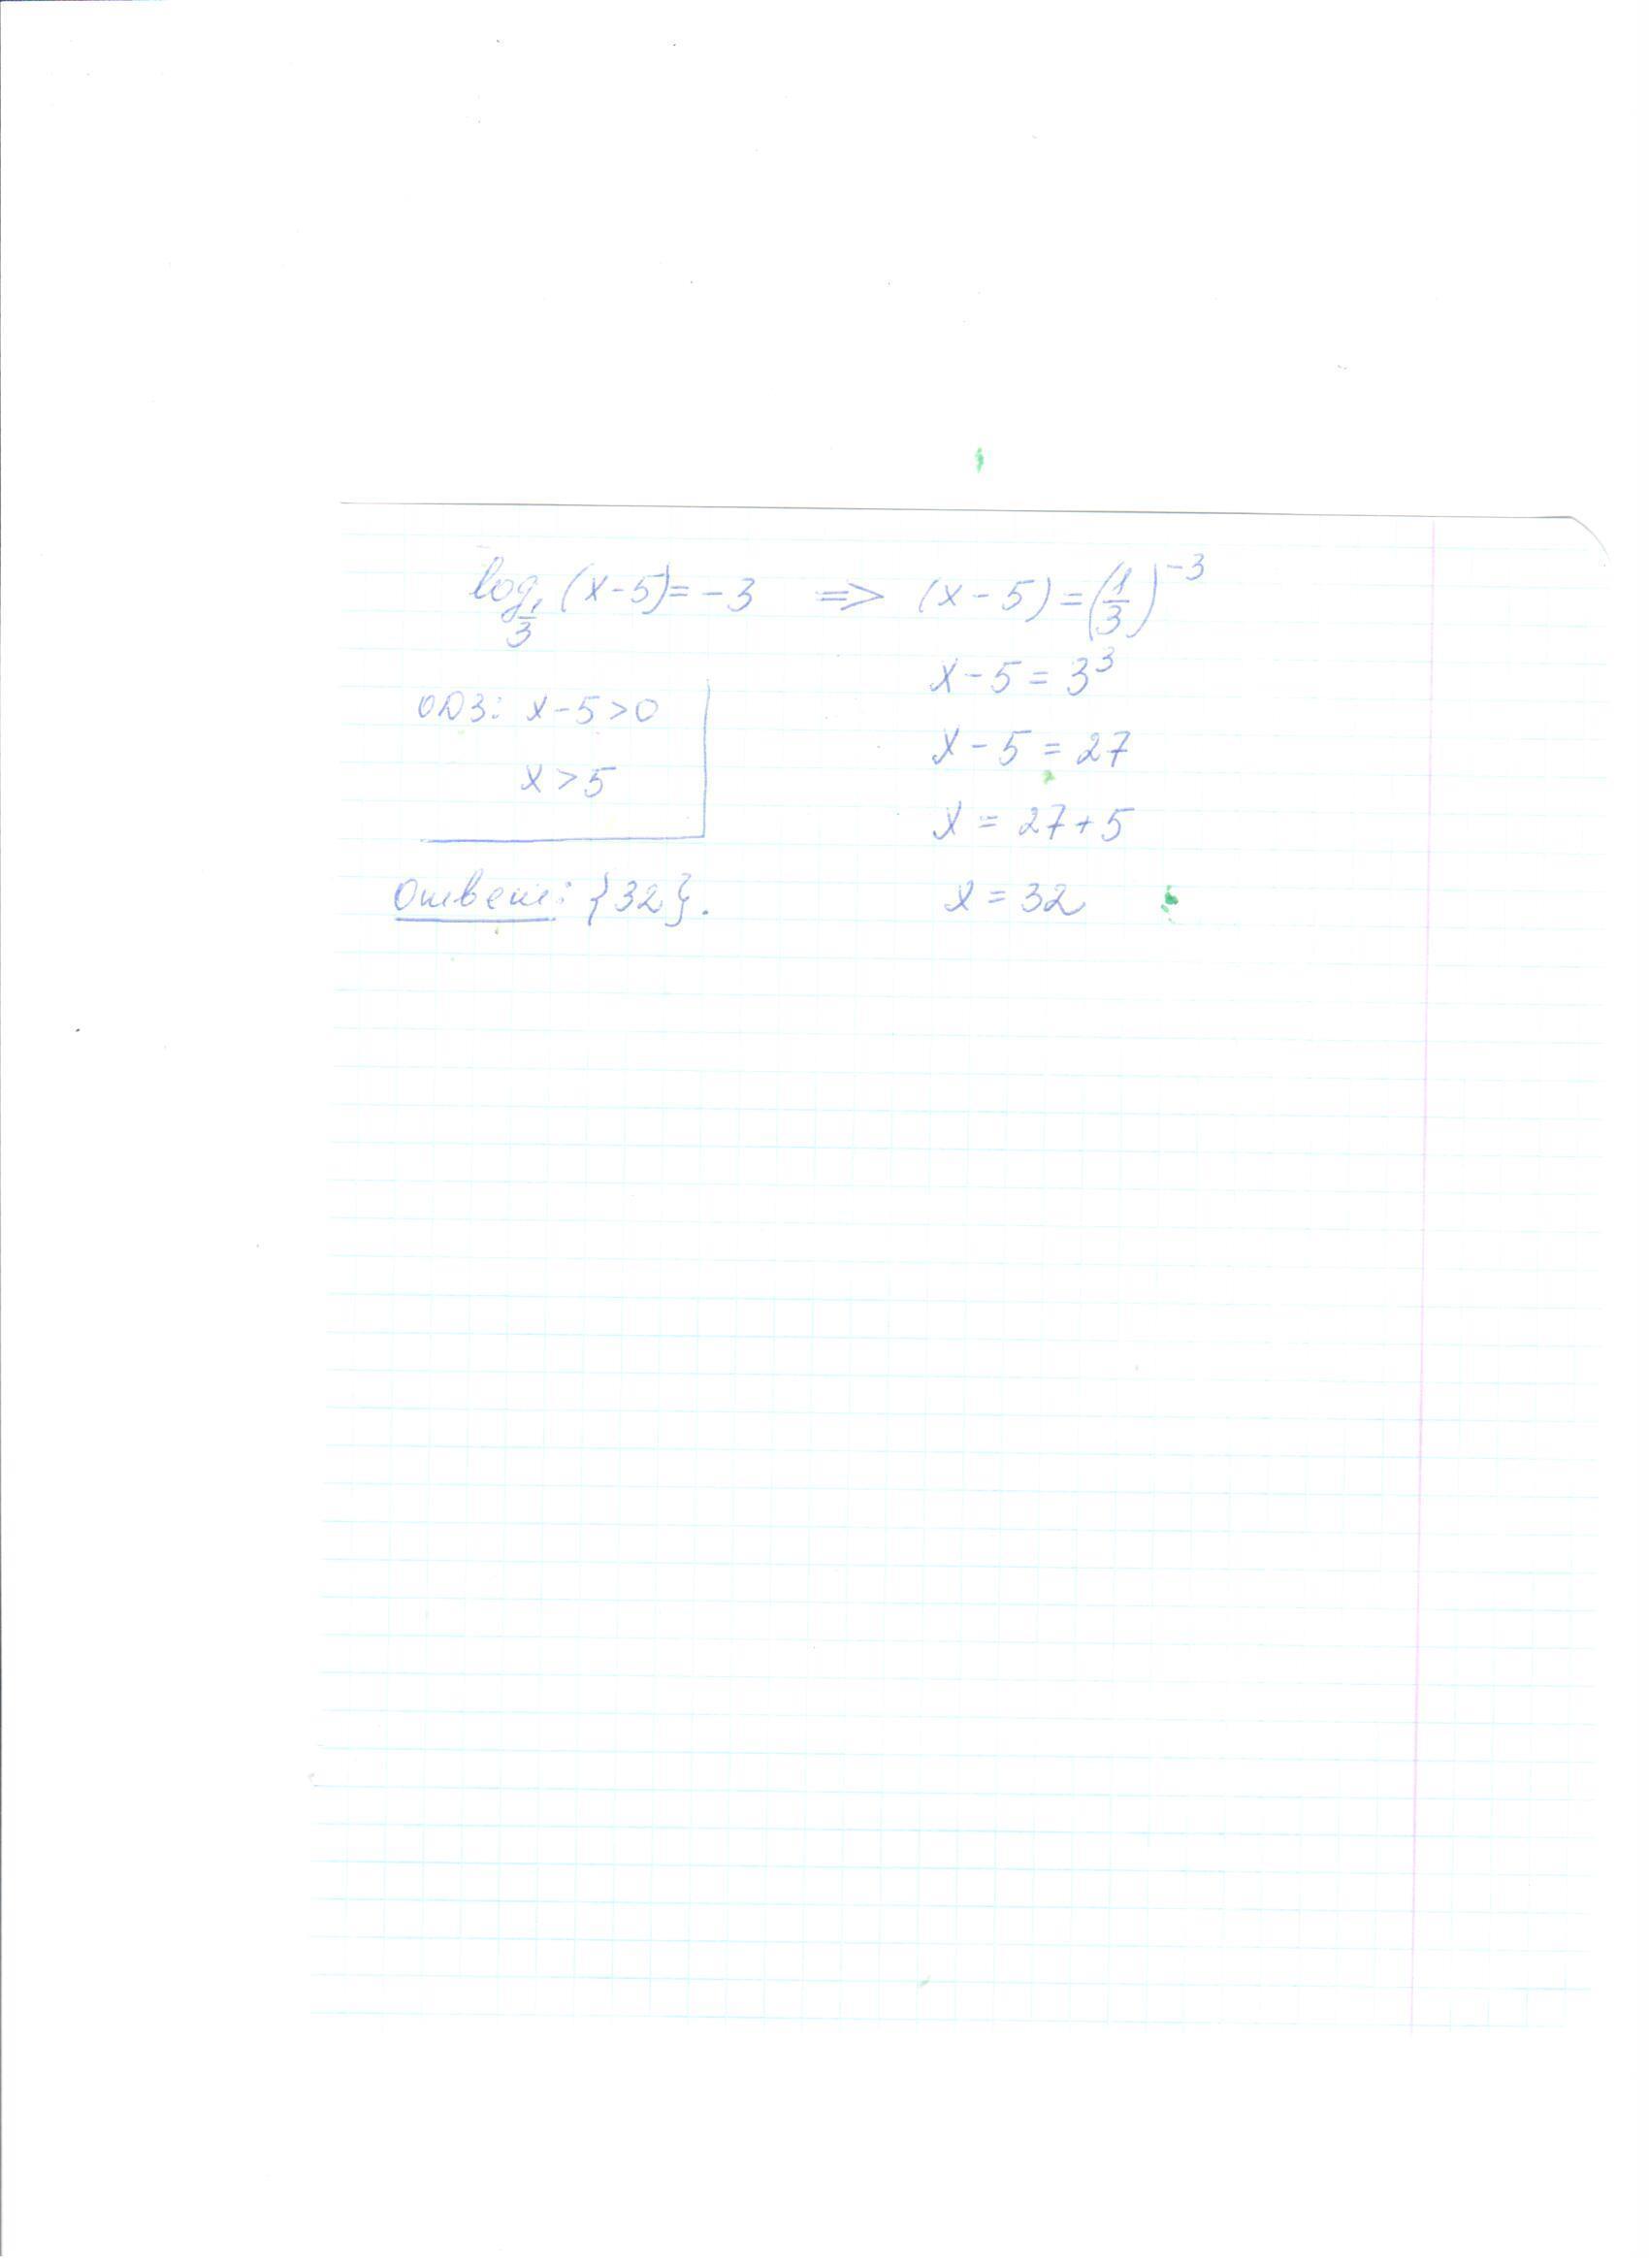 log₁/₃ (x-5) = -3 => (x-5) = (1/3)⁻³
x-5 = 3³
ОДЗ: x-5>0
x-5 = 27
x>5
x = 27+5
Ответ: {32}.
x = 32